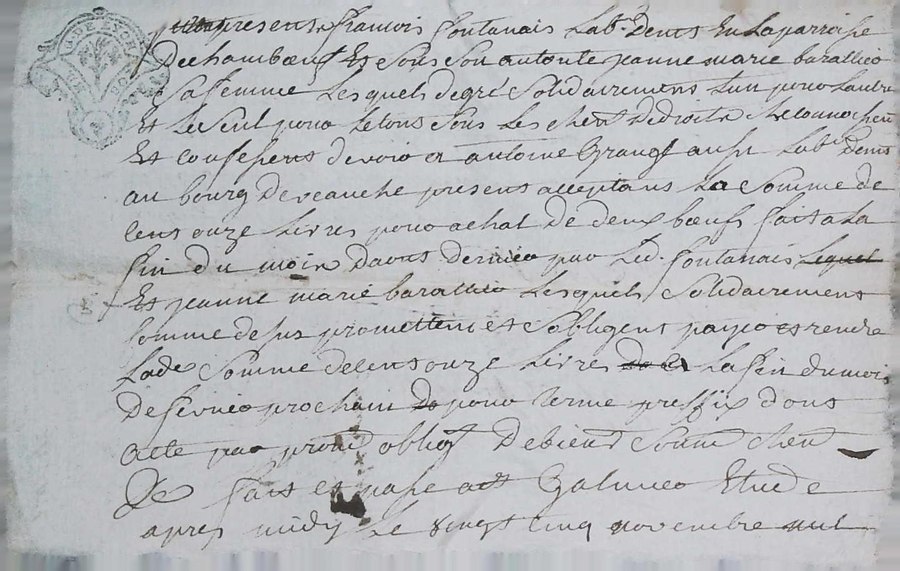 presents françois fontanais lab.r dem.t en la parroisse
de chambœuf et sous son autorité jeanne marie barallieo
sa femme lesquels de gré solidairement l'un pour l'autre
et le seul pour le tous sous les
et confessent devoir a antoine grangé aussi lab.r dem.t
au bourg de veauche present acceptant la somme de
cent onze livres pour achat de deux bœufs fait a la
fin du mois d'aout dernier par led. fontanais lequel
et jeanne marie barallieo lesquels solidairement
comme dessus promettent et s'obligent payer et rendre
lade somme de cent onze livres la fin du mois
de fevrier prochain pour terme preffix dont
acte par prom obligt de biens soum
fait et passé a st galmier etude
apres midy le vingt cinq novembre mil